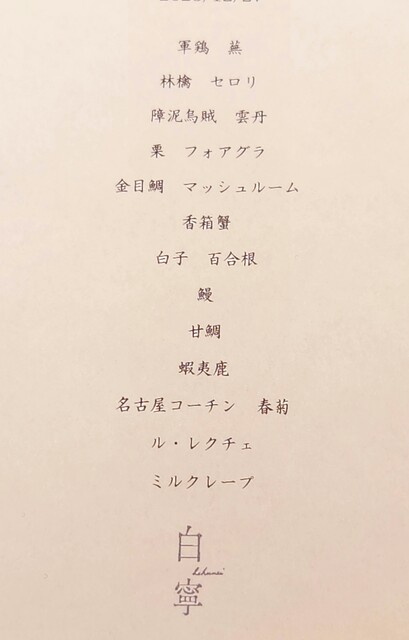 軍鶏　蕪
林檎　セロリ
障泥烏賊　雲丹
栗　フォアグラ
金目鯛　マッシュルーム
香箱蟹
白子　百合根
鰻
甘鯛
蝦夷鹿
名古屋コーチン　春菊
ル・レクチェ
ミルクレープ
白
寧